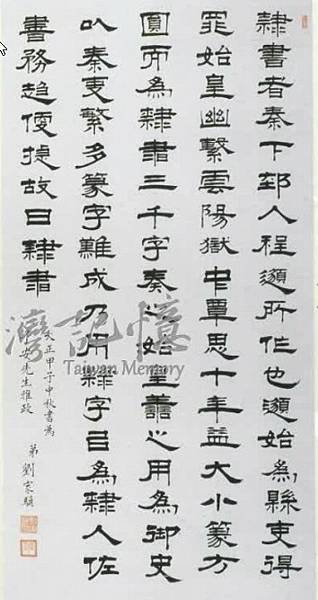 隸書者秦下邽人程邈所作也邈始為縣吏得
罪始皇幽繫雲陽獄中覃思十年益大小篆方
圓而為隸書三千字奏之始皇善之用為御史
以秦吏繁多篆字難成乃用隸字以為隸人佐
書務趨便捷故曰隸書
大正甲子中秋書為
先生雅政
弟劉家驥
臺灣記憶
Taiwan Memory